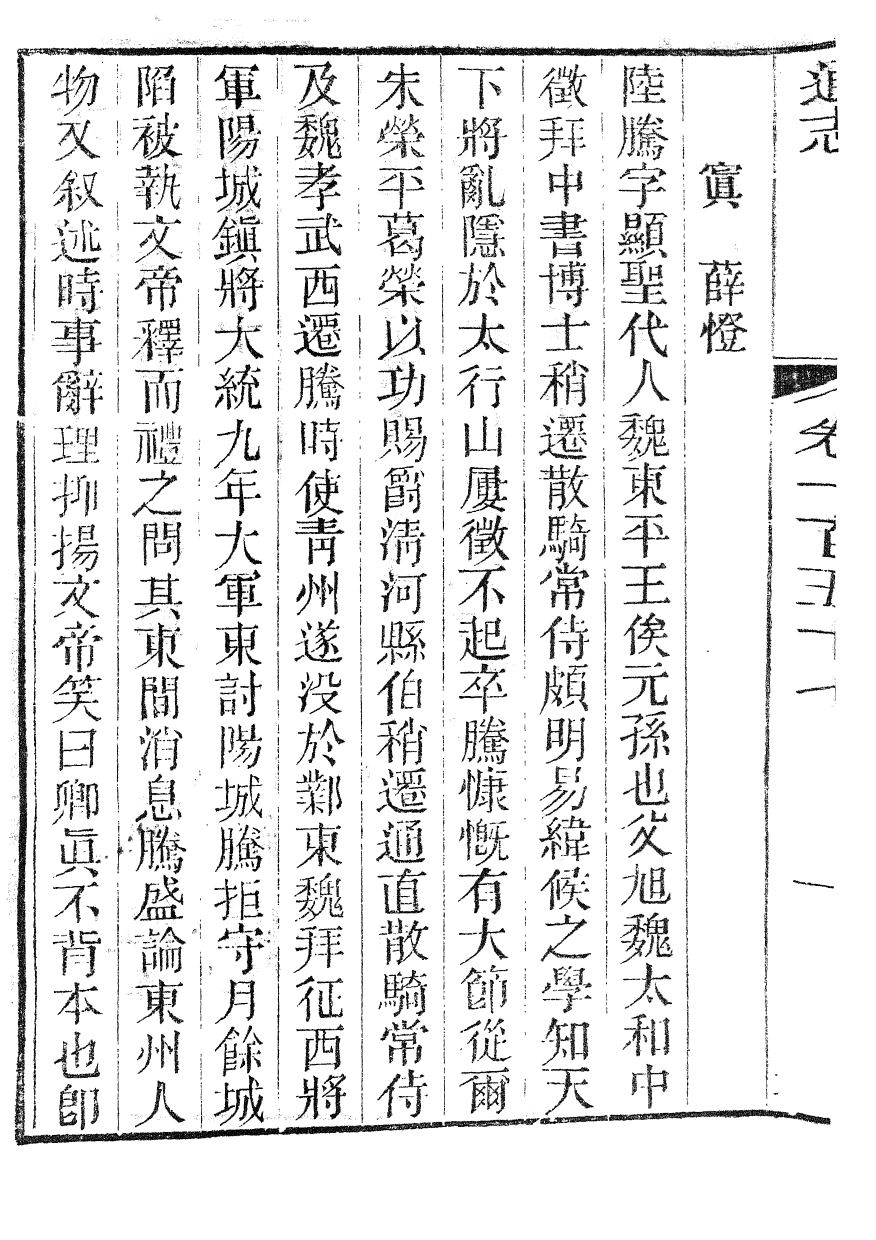 通志 卷一百五十七 一
寘 薛憕
陸騰字顯聖代人魏東平王俟元孫也父旭魏太和中
徵拜中書博士稍遷散騎常侍頗明易緯候之學知天
下將亂隱於太行山屢徵不起卒騰慷慨有大節從爾
朱榮平葛榮以功賜爵淸河縣伯稍遷通直散騎常侍
及魏孝武西遷騰時使靑州遂没於鄴東魏拜征西將
軍陽城鎭將大統九年大軍東討陽城騰拒守月餘城
陷被執文帝釋而禮之問其東間消息騰盛論東州人
物又叙述時事辭理抑揚文帝笑曰卿眞不背本也卽